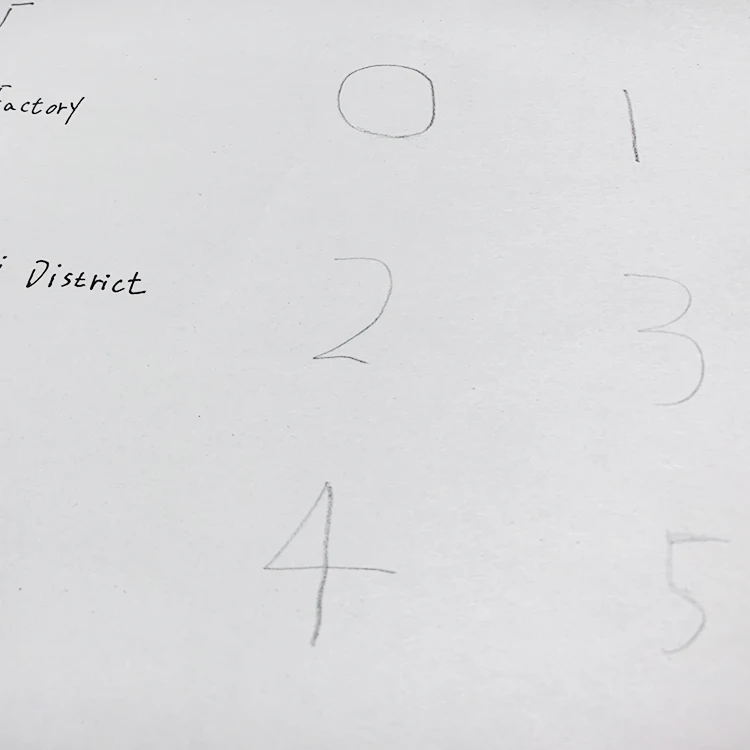 Factory
0 1
District
2 3
4 5